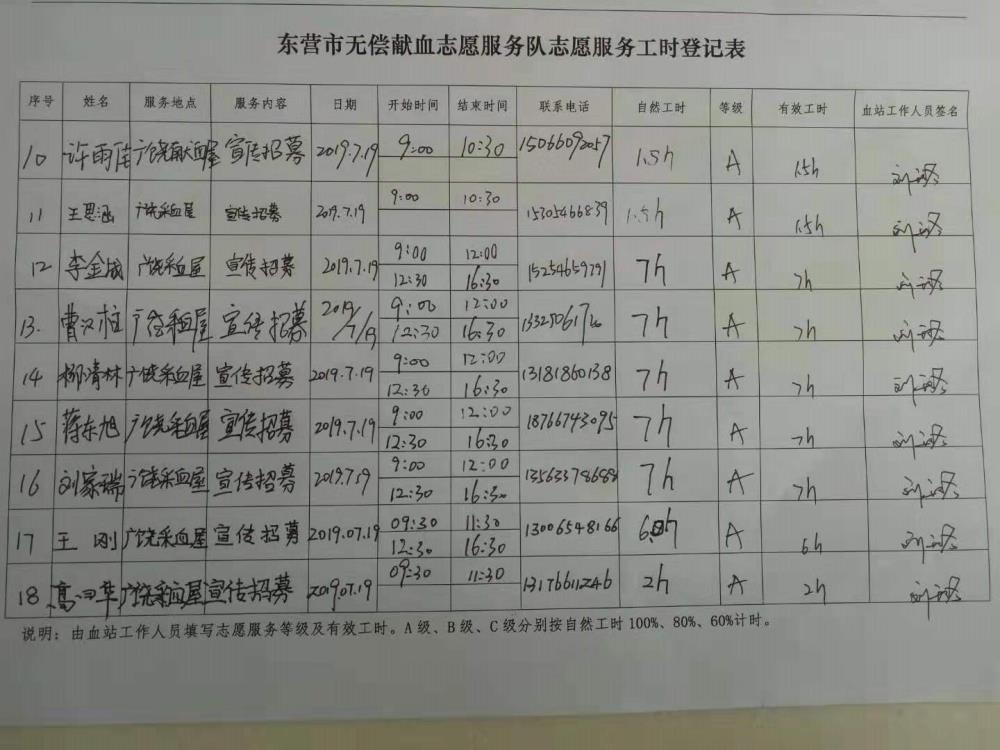 东营市无偿献血志愿服务队志愿服务工时登记表
序号 姓名 服务地点 服务内容 日期 开始时间 结束时间 联系电话 自然工时 等级 有效工时 血站工作人员签名
10 许雨佳 广饶献血屋 宣传招募 2019.7.19 9:00 10:30 15066092057 1.5h A 1.5h
11 王思涵 广饶采血屋 宣传招募 2019.7.19 9:00 10:30 15305466839 1.5h A 1.5h
12 李金成 广饶采血屋 宣传招募 2019.7.19 9:00 12:00 15254659791 7h A 7h
12:30 16:30
13. 曹汉柱 广饶采血屋 宣传招募 2019/7/19 9:00 12:00 7h A 7h
12:30 16:30
14 柳清林 广饶采血屋 宣传招募 2019.7.19 9:00 12:00 13181860138 7h A 7h
12:30 16:30
15 蒋东旭 广饶采血屋 宣传招募 2019.7.19 9:00 12:00 18766743095 7h A 7h
12:30 16:30
16 刘家瑞 广饶采血屋 宣传招募 9:00 12:00 13563378688 7h A 7h
12:30 16:30
17 王刚 广饶采血屋 宣传招募 2019.07.19 09:30 11:30 13006548166 A 6h
12:30 16:30
18 广饶采血屋 宣传招募 2019.07.19 09:30 11:30 13176611246 2h A 2h
说明：由血站工作人员填写志愿服务等级及有效工时。A级、B级、C级分别按自然工时100%、80%、60%计时。